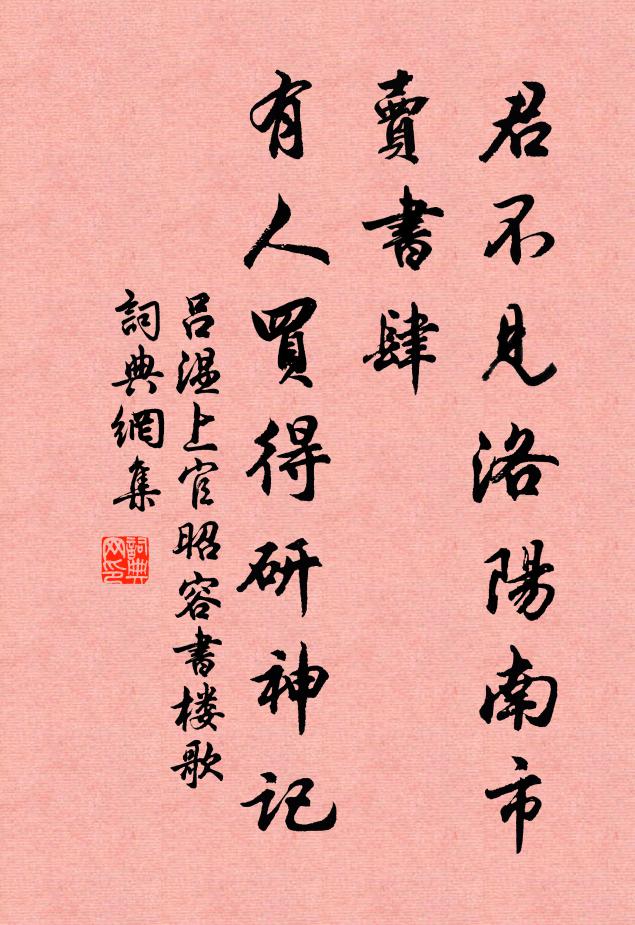 君不見洛陽南市
賣書肆
有人買得研神記
呂温上官昭容書楼歌
詞典網集
詞典
网印